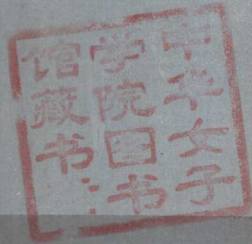 中华女子
学院图书
馆藏书